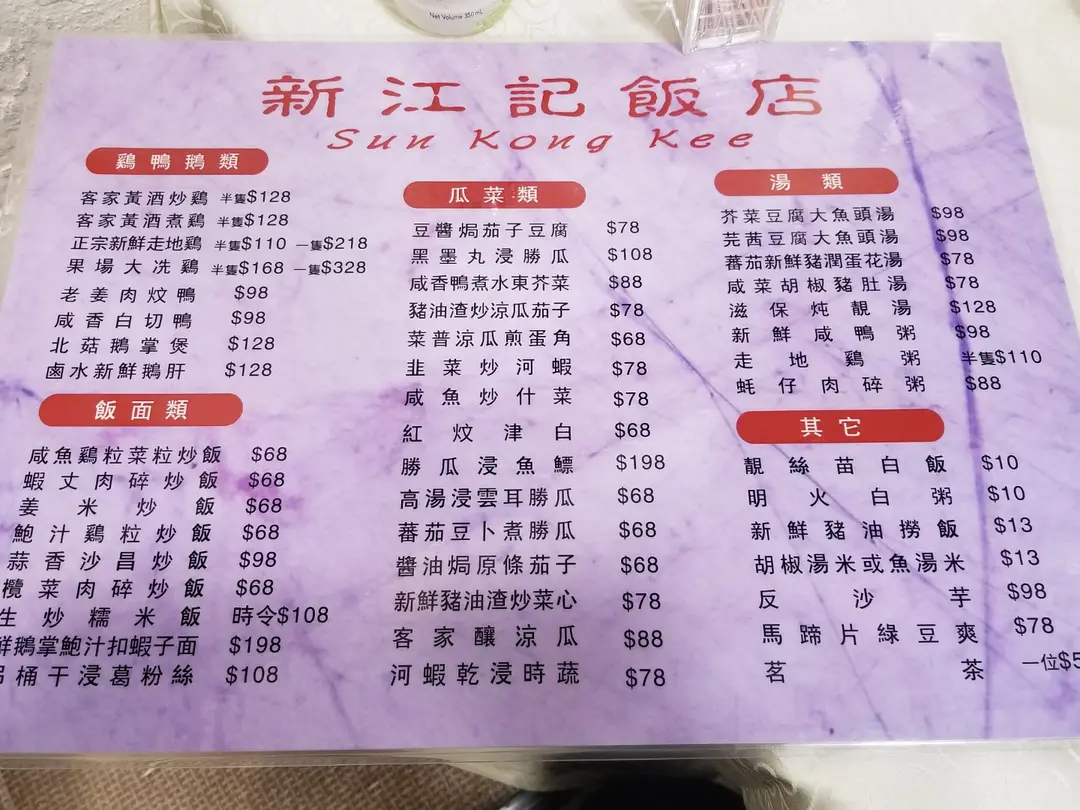 Net Volume 350 mL
新江記飯店
Sun Kong Kee
鷄鴨鵝類
客家黃酒炒鷄 半隻$128
客家黃酒煮鷄 半隻$128
正宗新鮮走地鷄 半隻$110 一隻$218
果場大冼鷄 半隻$168 一隻$328
老姜肉炆鴨 $98
咸香白切鴨 $98
北菇鵝掌煲 $128
鹵水新鮮鵝肝 $128
飯面類
咸魚鷄粒菜粒炒飯 $68
蝦丈肉碎炒飯 $68
姜米炒飯 $68
鮑汁鷄粒炒飯 $68
蒜香沙昌炒飯 $98
欖菜肉碎炒飯 $68
生炒糯米飯 時令$108
鮮鵝掌鮑汁扣蝦子面 $198
桶干浸葛粉絲 $108
瓜菜類
豆醬焗茄子豆腐 $78
黑墨丸浸勝瓜 $108
咸香鴨煮水東芥菜 $88
豬油渣炒涼瓜茄子 $78
菜普涼瓜煎蛋角 $68
韭菜炒河蝦 $78
咸魚炒什菜 $78
紅炆津白 $68
勝瓜浸魚鰾 $198
高湯浸雲耳勝瓜 $68
蕃茄豆卜煮勝瓜 $68
醬油焗原條茄子 $68
新鮮豬油渣炒菜心 $78
客家釀涼瓜 $88
河蝦乾浸時蔬 $78
湯類
芥菜豆腐大魚頭湯 $98
芫茜豆腐大魚頭湯 $98
蕃茄新鮮豬潤蛋花湯 $78
咸菜胡椒豬肚湯 $78
滋保炖靚湯 $128
新鮮咸鴨粥 $98
走地鷄粥 半隻$110
蚝仔肉碎粥 $88
其它
靚絲苗白飯 $10
明火白粥 $10
新鮮豬油撈飯 $13
胡椒湯米或魚湯米 $13
反沙芋 $98
馬蹄片綠豆爽 $78
茗茶 一位$5